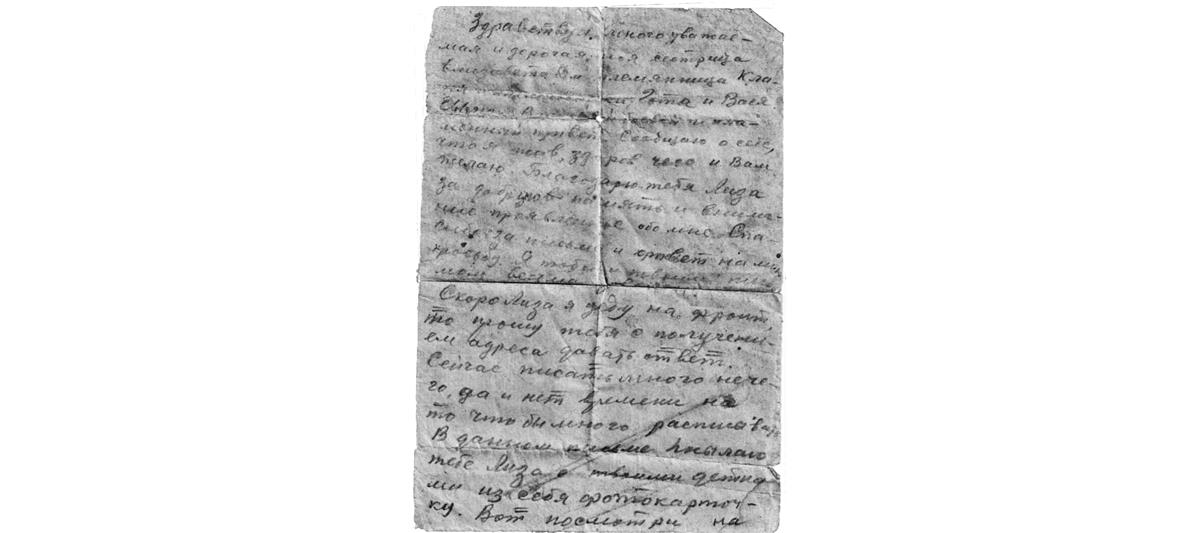 Здравствуй много уважае-
мая и дорогая моя сестрица
Елизавета племянница Кла-
Тота и Вася
менный привет Сообщаю о себе,
что я жив, здоров чего и Вам
желаю Благодарю тебя Лиза
за добрую память и внима-
ние проявленное обо мне. Спа-
сибо за письмо и ответ на мой
Скоро Лиза я уеду на фронт,
то прошу тебя с получени-
ем адреса давать ответ.
Сейчас писать много нече-
го, да и нет времени на
то что бы много расписывать
В данном письме
тебе Лиза с твоими детка
ми из себя фотокарточ-
ку. Вот посмотри на